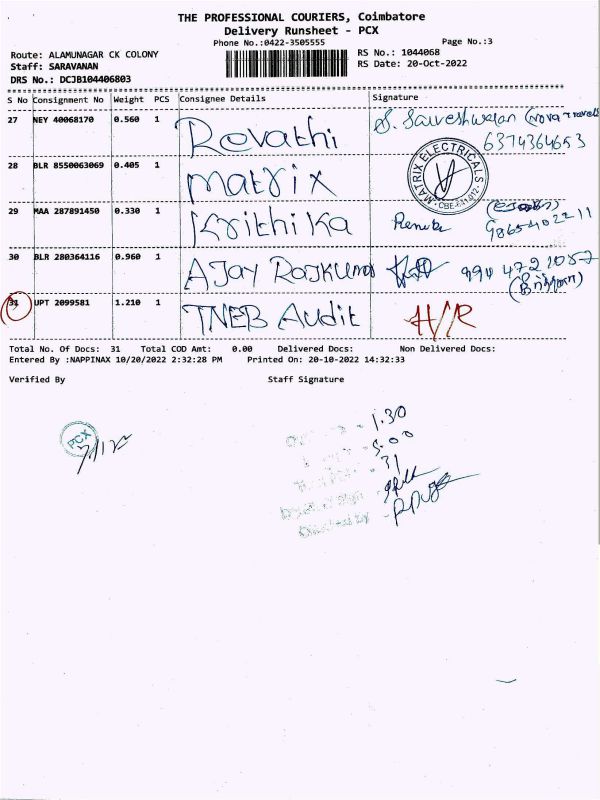 THE PROFESSIONAL COURIERS, Coimbatore
Delivery Runsheet - PCX
Phone No.:0422-3505555
Page No.:3
Route: ALAMUNAGAR CK COLONY
RS No.: 1044068
Staff: SARAVANAN
RS Date: 20-Oct-2022
DRS No.: DCJB104406803
S No Consignment No Weight PCS Consignee Details Signature
27 NEY 40068170 0.560 1 Rovathi S. Sarveshwaran (Nova Travels
6374364653
28 BLR 8550063069 0.405 1 Matrix MATRIX ELECTRICALS
29 MAA 287891450 0.330 1 Krithika Renuka 9865402211
30 BLR 280364116 0.960 1 AJay Rajkumar
31 UPT 2099581 1.210 1 TNEB Audit H/R
Total No. Of Docs: 31 Total COD Amt: 0.00 Delivered Docs: Non Delivered Docs:
Entered By :NAPPINAX 10/20/2022 2:32:28 PM Printed On: 20-10-2022 14:32:33
Verified By Staff Signature
PCX
- 1.30
- 5.00
- 31